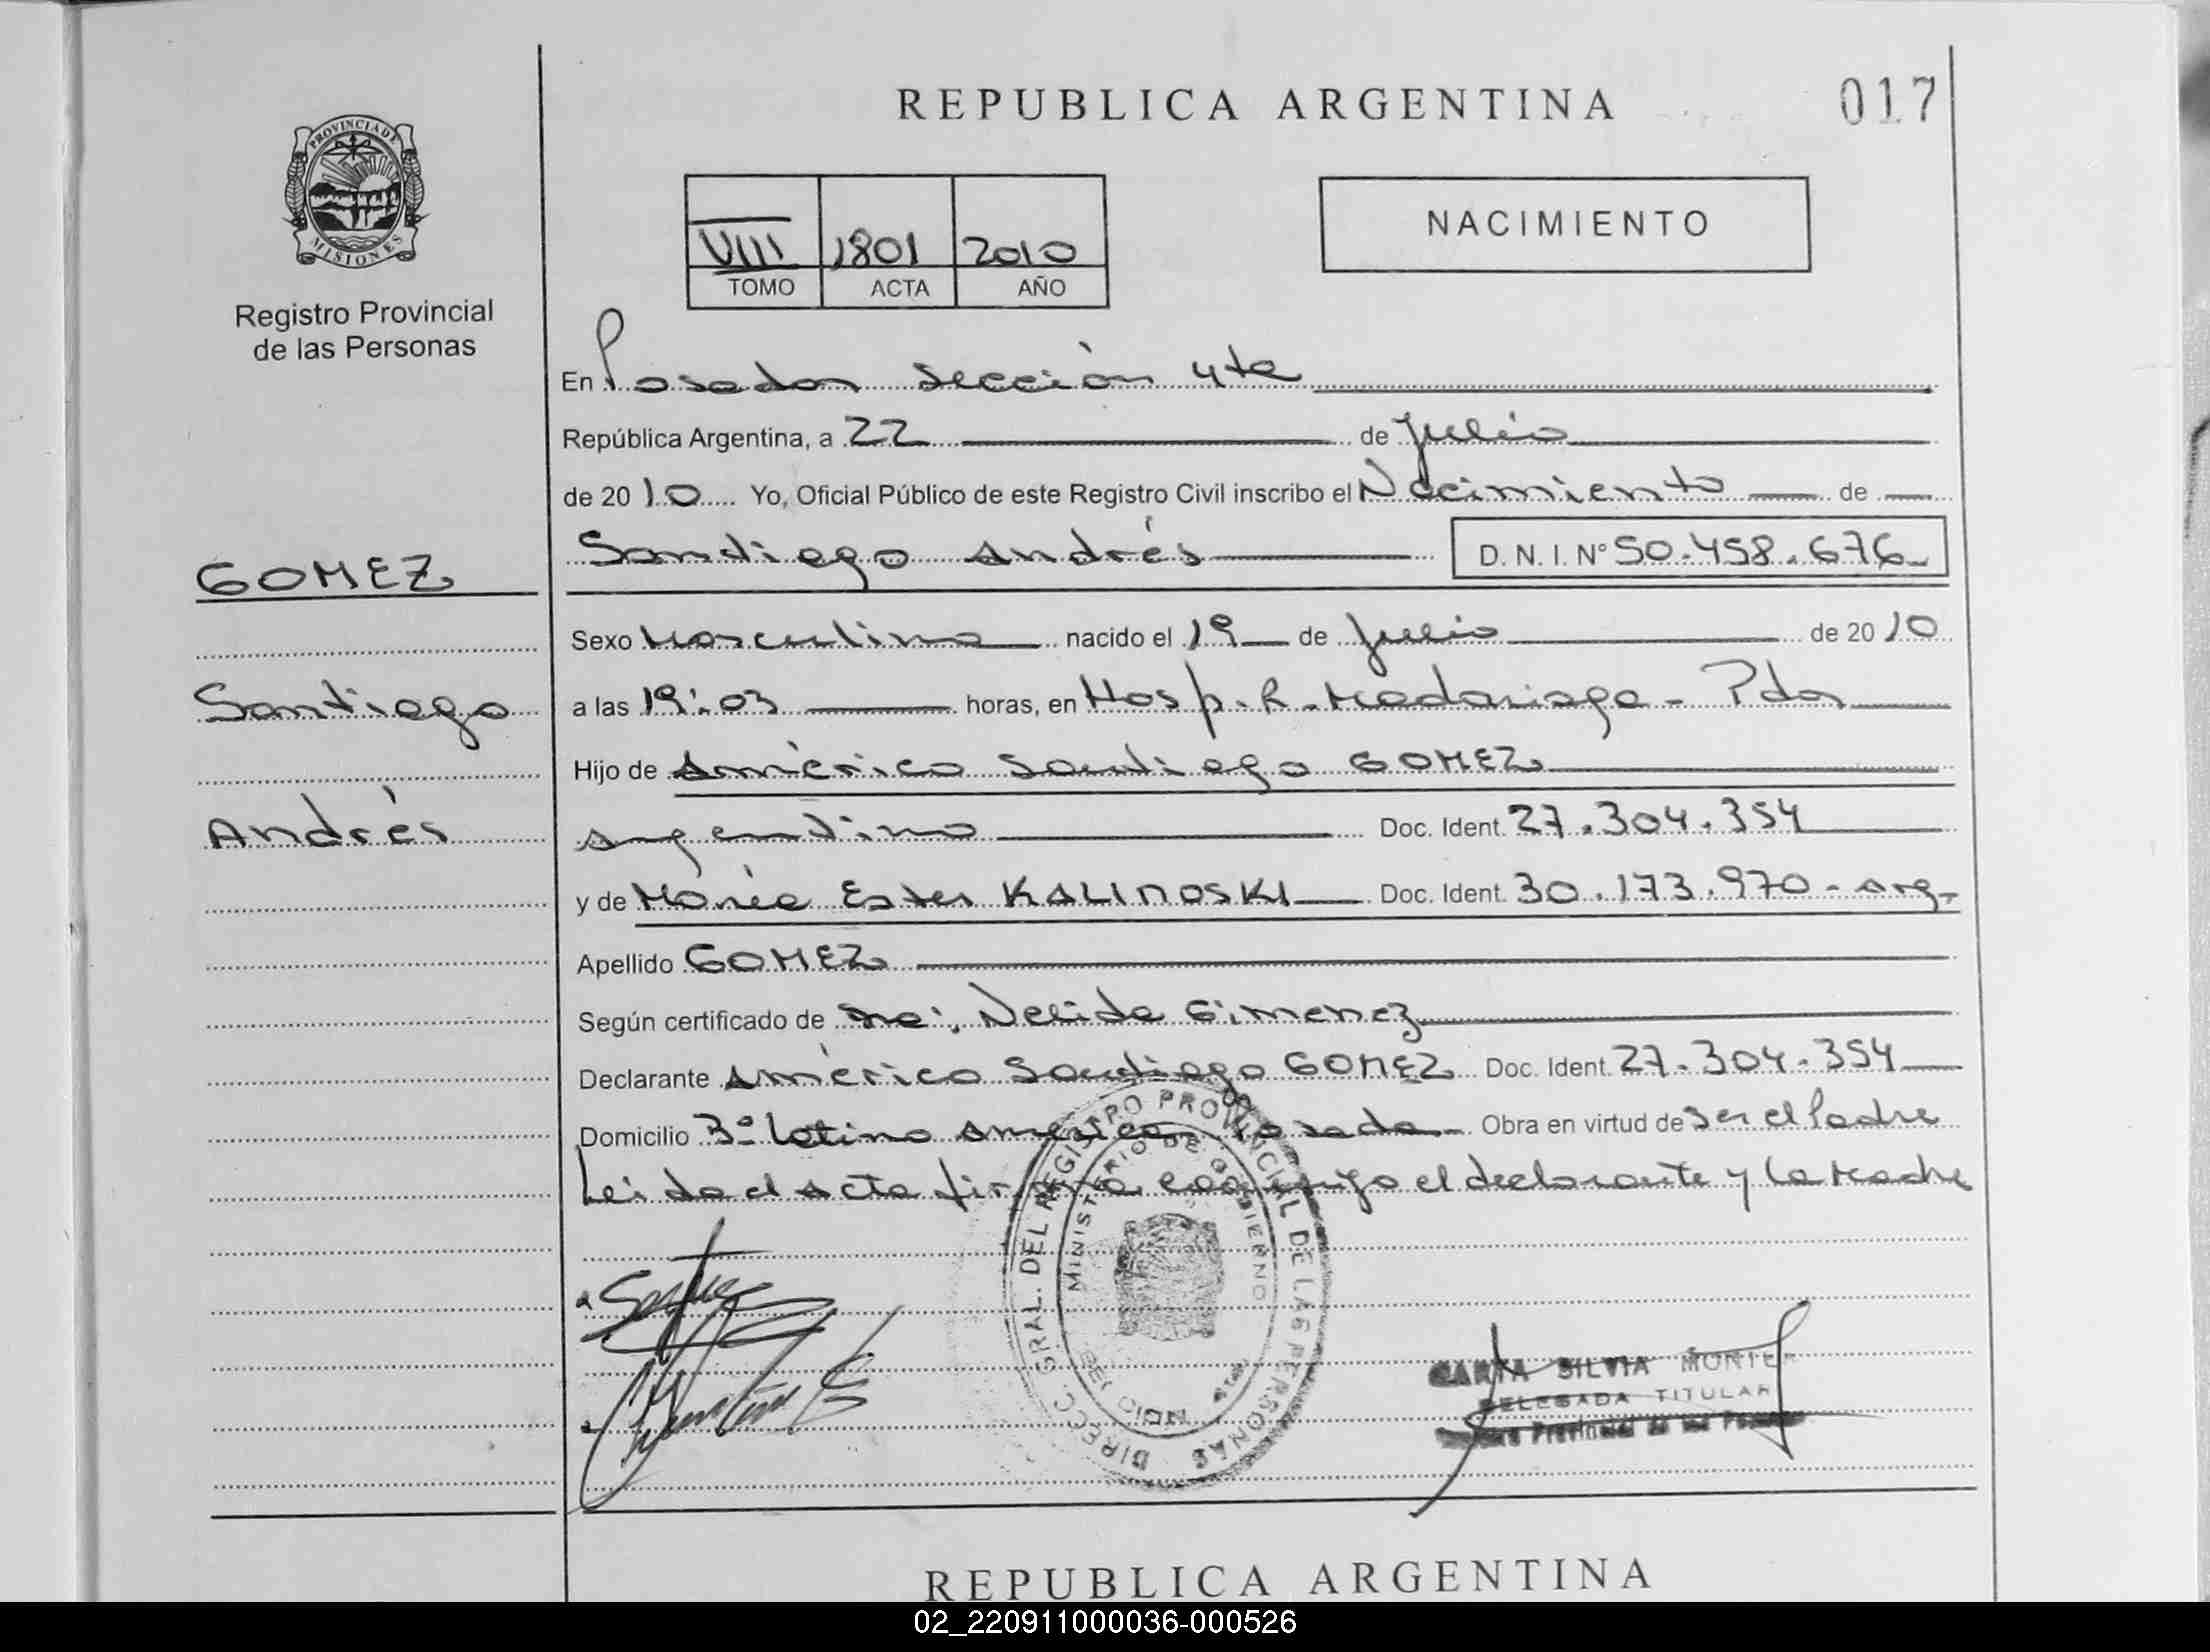 REPUBLICA ARGENTINA
017
PROVINCIA DE
MISIONES
Registro Provincial
de las Personas
VIII 1801 2010
TOMO ACTA AÑO
NACIMIENTO
En Posadas sección 4ta
República Argentina, a 22 de Julio
de 2010 Yo, Oficial Público de este Registro Civil inscribo el Nacimiento de
Santiago Andrés D. N. I. N° 50.458.676
GOMEZ
Santiago
Andrés
Sexo Masculino nacido el 19 de Julio de 2010
a las 19:03 horas, en Hosp. R. Madariaga - Pdas
Hijo de Américo Santiago GOMEZ
argentino Doc. Ident. 27.304.354
y de María Ester KALINOSKI Doc. Ident. 30.173.970 - arg.
Apellido GOMEZ
Según certificado de Nelida Gimenez
Declarante Américo Santiago GOMEZ Doc. Ident. 27.304.354
Domicilio Bº Latino america Posadas Obra en virtud de ser el Padre
Leida el acta firma conmigo el declarante y la Madre
DIRECC. GRAL. DEL REGISTRO PROVINCIAL DE LAS PERSONAS
MINISTERIO DE GOBIERNO
SILVIA
DELEGADA TITULAR
Provincial de las Personas
REPUBLICA ARGENTINA
02_220911000036-000526